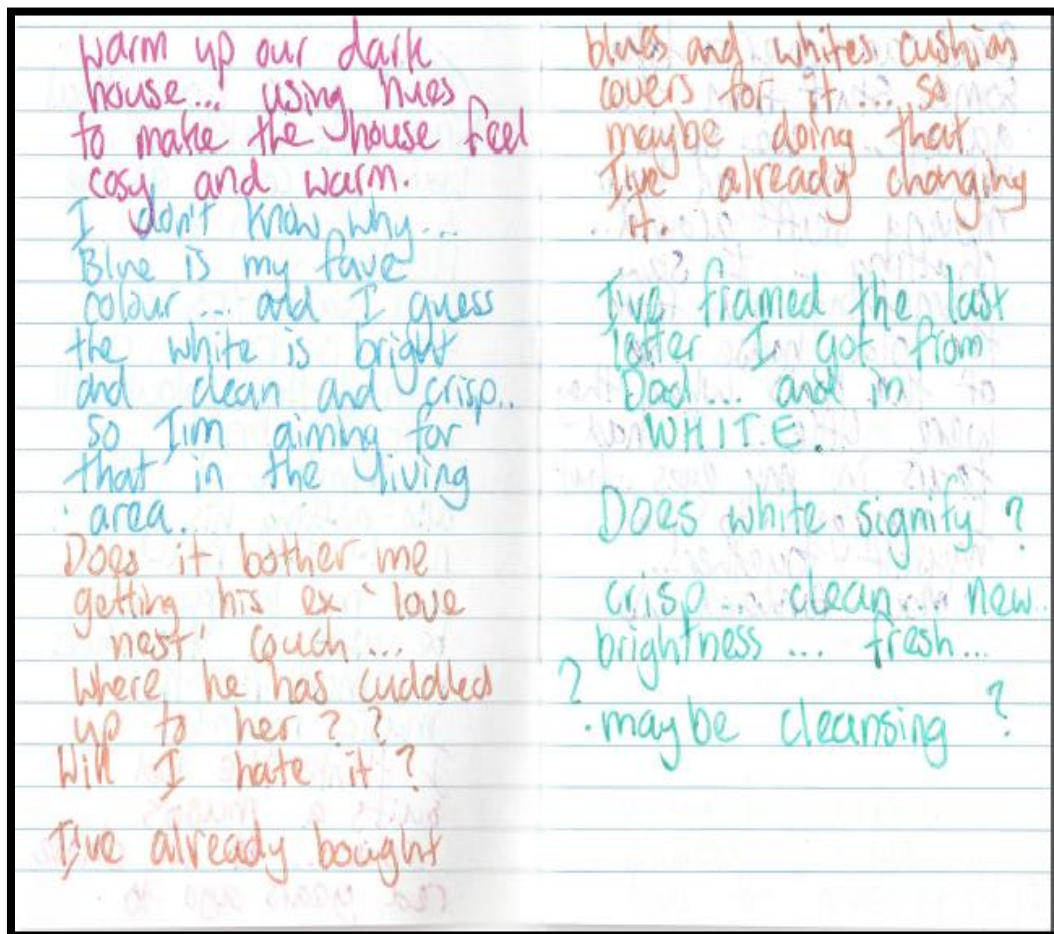 warm up our dark
house... using hues
to make the house feel
cosy and warm.
I don't know why...
Blue is my fave
colour... and I guess
the white is bright
and clean and crisp..
so I'm aiming for
that in the living
area.
Does it bother me
getting his ex 'love
nest' couch...
where he has cuddled
up to her??
Will I hate it?
I've already bought
blues and whites cushion
covers for it... so
maybe doing that
I've already changing
it.
I've framed the last
letter I got from
Dad... and in
WHITE.
Does white signify?
crisp... clean... new..
brightness... fresh...
? maybe cleansing?